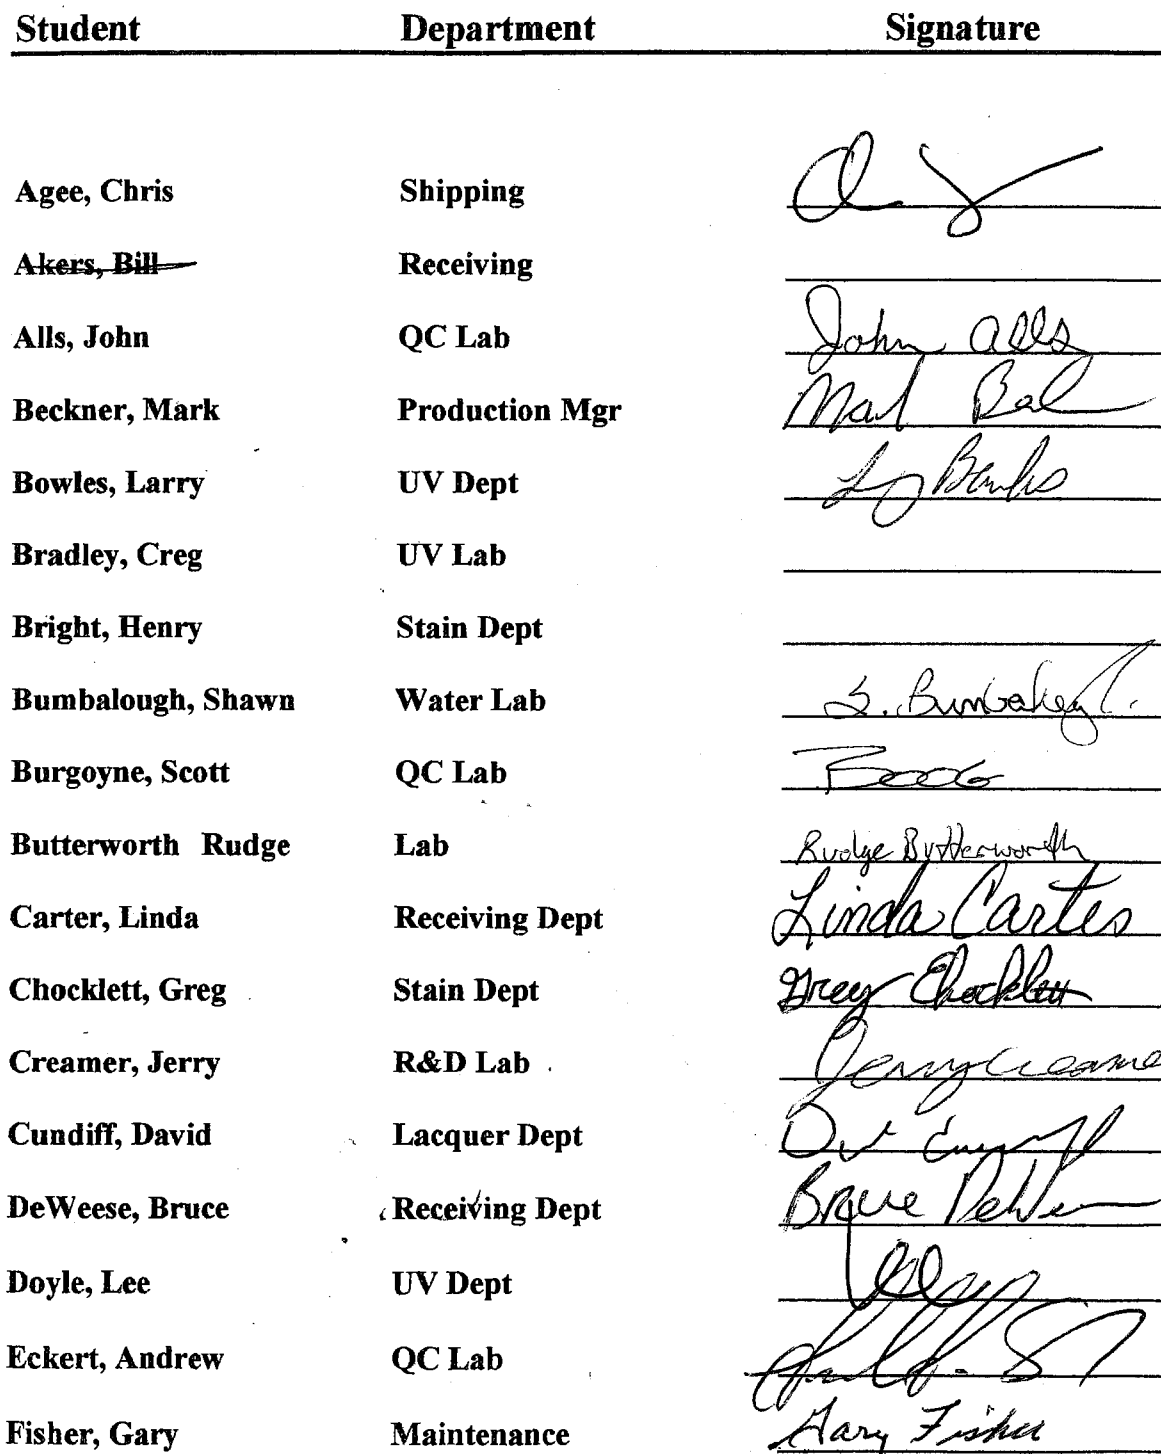 Student Department Signature
Agee, Chris Shipping
Akers, Bill Receiving
Alls, John QC Lab John Alls
Beckner, Mark Production Mgr
Bowles, Larry UV Dept
Bradley, Creg UV Lab
Bright, Henry Stain Dept
Bumbalough, Shawn Water Lab S.
Burgoyne, Scott QC Lab
Butterworth Rudge Lab Rudge Butterworth
Carter, Linda Receiving Dept Linda Carter
Chocklett, Greg Stain Dept Greg Chocklett
Creamer, Jerry R&D Lab Jerry Creamer
Cundiff, David Lacquer Dept
DeWeese, Bruce Receiving Dept Bruce
Doyle, Lee UV Dept
Eckert, Andrew QC Lab
Fisher, Gary Maintenance Gary Fisher